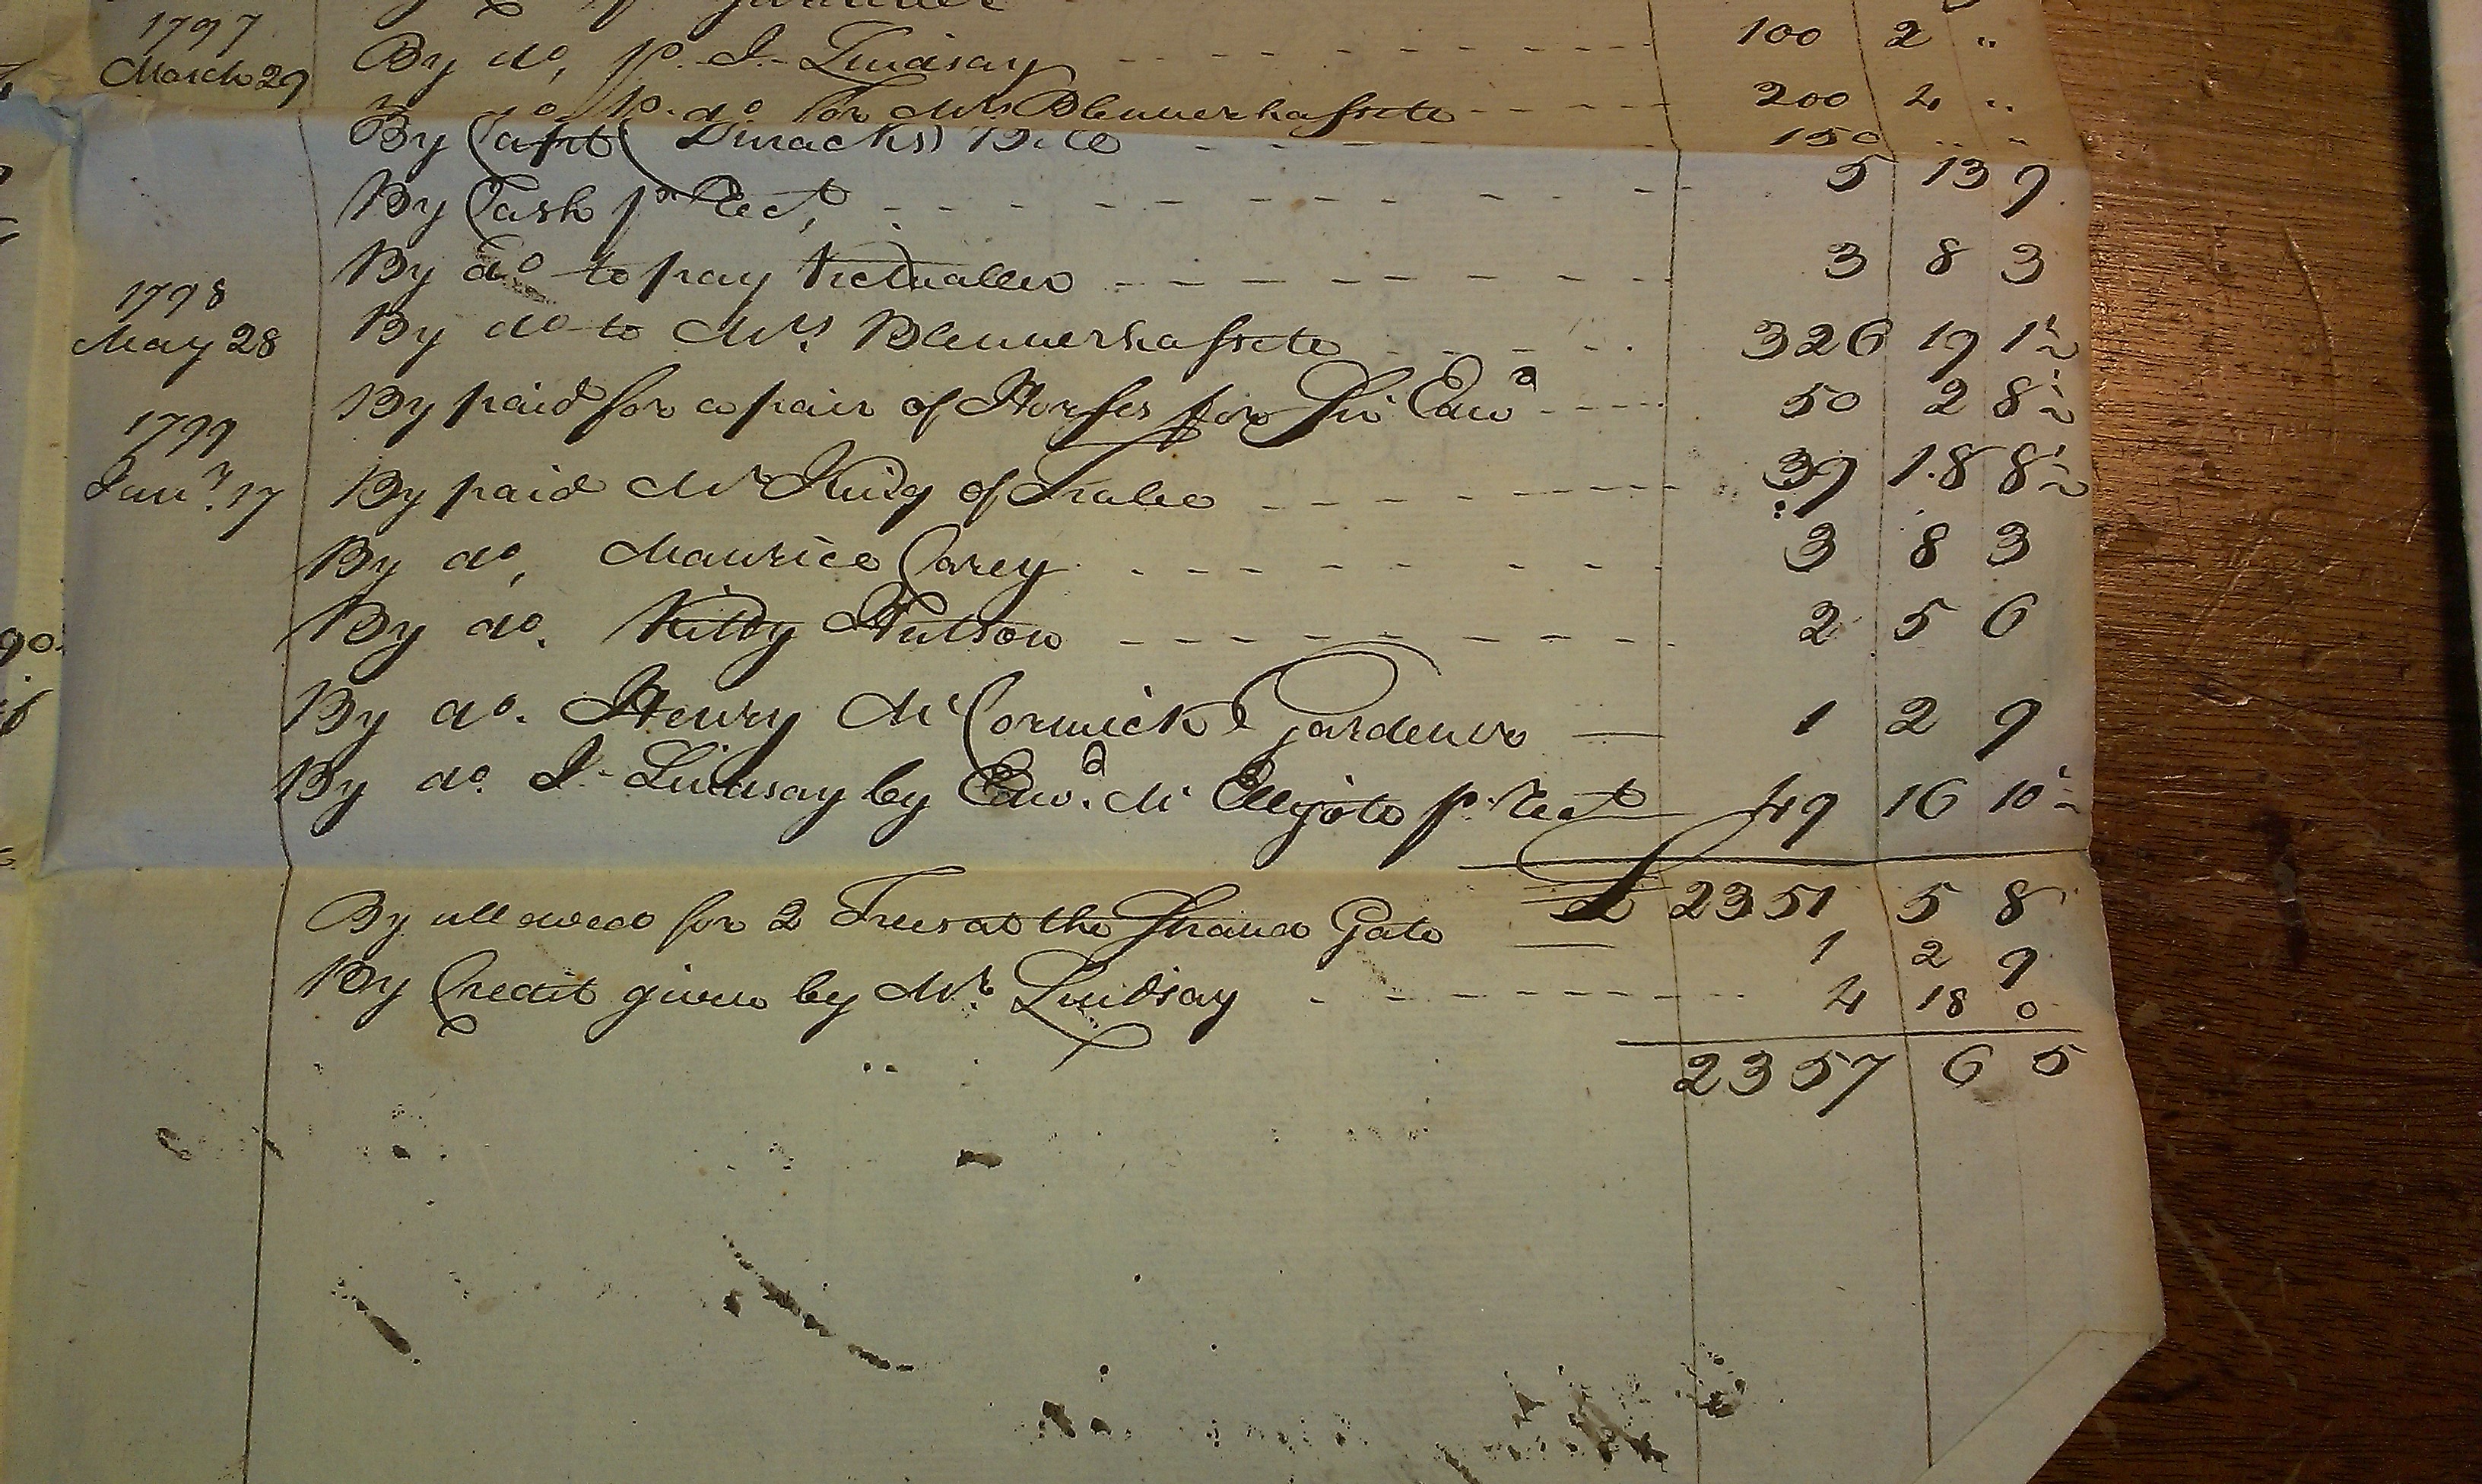 1797
March 29 By do, p. J. Lindsay 100 2 "
By do p. do for Mrs Blennerhassett 200 4 "
By Capt Bill 150 " "
By Cash pr Rect, 5 13 9
By do to pay Victualler 3 8 3
1798
May 28 By do to Mrs. Blennerhassett 326 19 1½
By paid for a pair of Horses for Sir Edwd 50 2 8½
1799
Jany. 17 By paid Mr King of Tralee 39 18 8½
By do, Maurice Carey 3 8 3
By do. Kitty Hutson 2 5 6
By do. Henry McCormick Gardener 1 2 9
By do. J. Lindsay by Edwd. Mc Elligott p. Rect 49 16 10½
£ 2351 5 8
By allowed for 2 Trees at the Strand Gate 1 2 9
By Credit given by Mr. Lindsay 4 18 0
2357 6 5